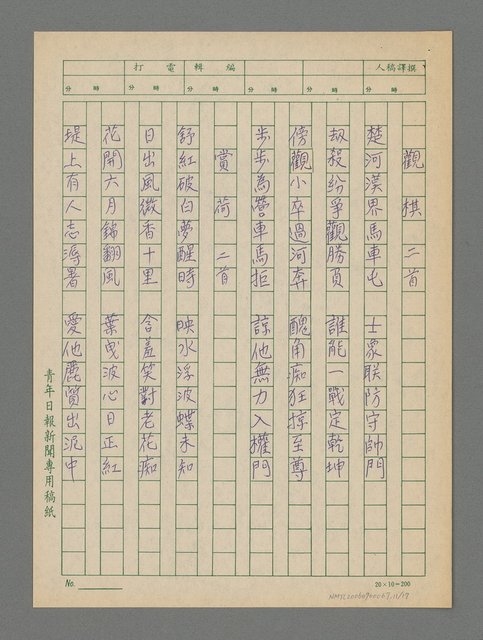 撰譯稿人
編輯
電打
時 分 時 分 時 分 時 分 時 分 時 分
觀棋 二首
楚河漢界馬車屯 士象联防守帥門
劫殺紛爭觀勝負 誰能一戰定乾坤
傍觀小卒過河奔 醜角痴狂掠至尊
步步為營車馬拒 諒他無力入權門
賞荷 二首
舒紅破白夢醒時 映水浮波蝶未知
日出風微香十里 含羞笑對老花痴
花開六月錦翻風 葉曳波心日正紅
堤上有人忘溽暑 愛他麗質出泥中
青年日報新聞專用稿紙
No.
20×10=200